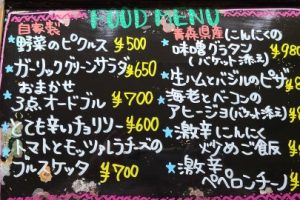 FOOD MENU
自家製
★野菜のピクルス ¥500
★ガーリックグリーンサラダ ¥650
★おまかせ
3点オードブル ¥700
★とても辛いチョリソー ¥600
★トマトとモッツァレラチーズの
ブルスケッタ ¥700
★青森県産にんにくの
味噌グラタン ¥980
(バケット添え)
★生ハムとバジルのピザ ¥8
★海老とベーコンの
アヒージョ(バケット添え)
★激辛にんにく
炒めご飯
★激辛
ペペロンチーノ